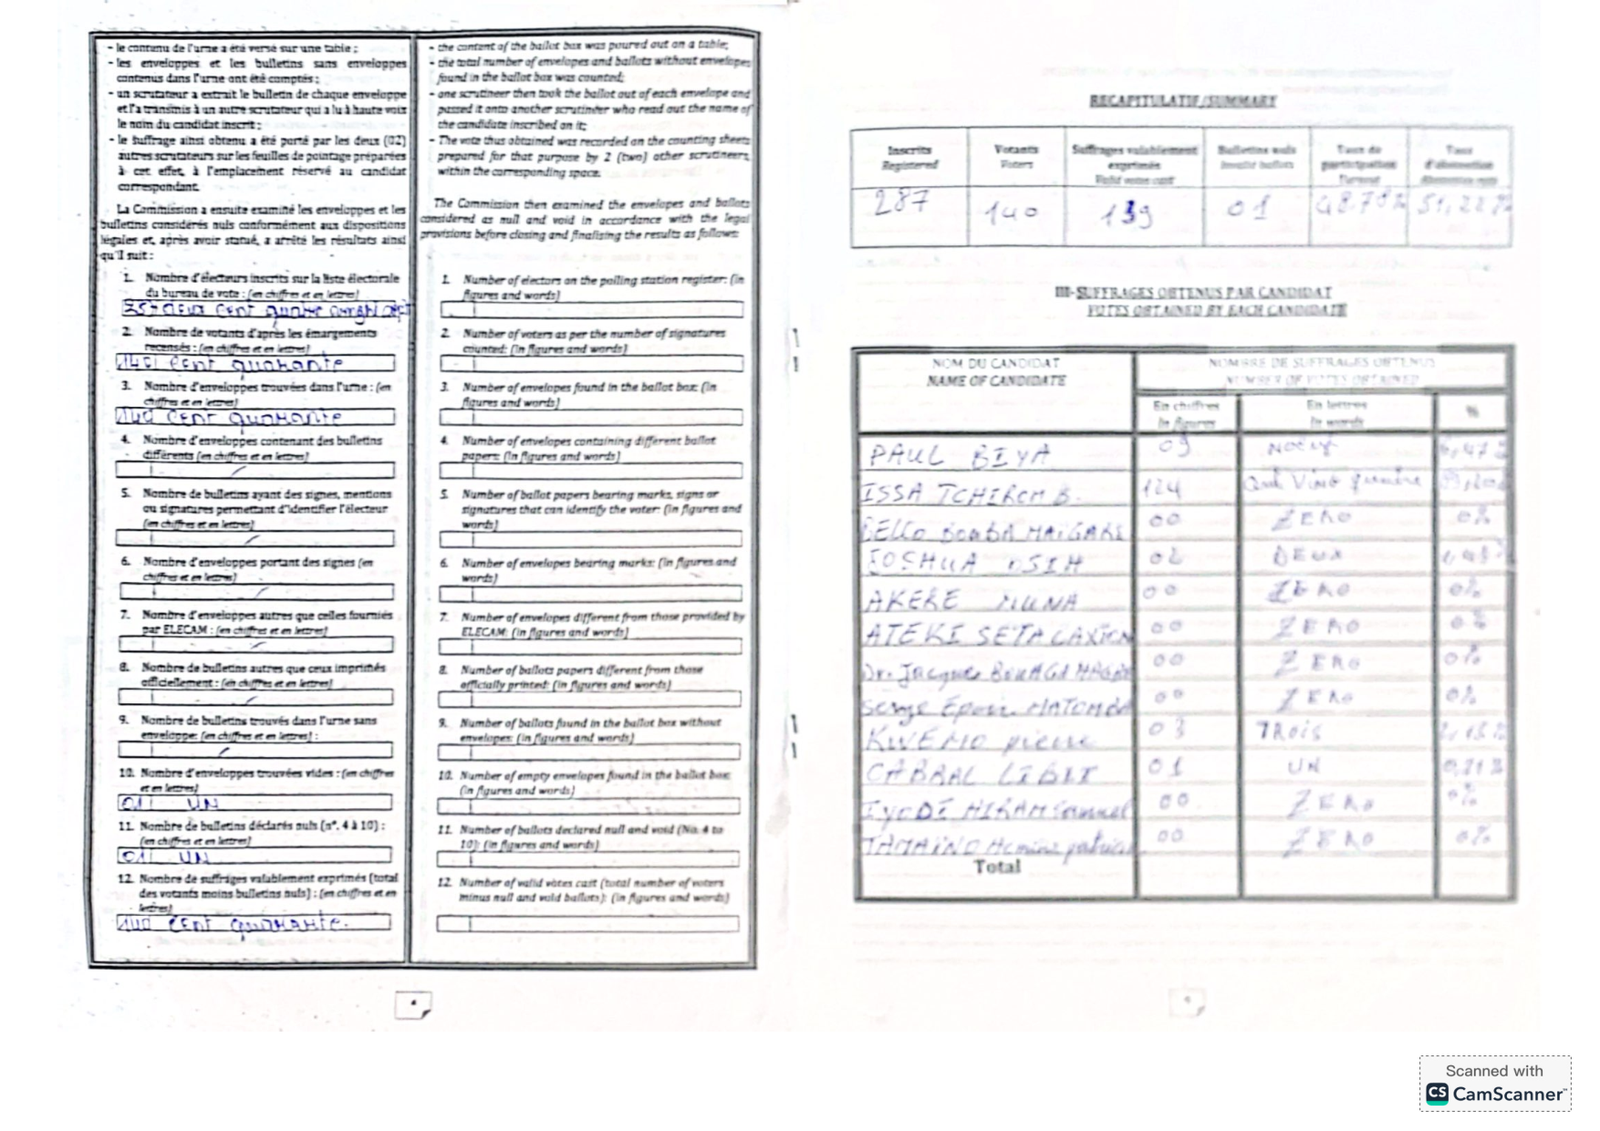 - le contenu de l'urne a été versé sur une table ;
- les enveloppes et les bulletins sans enveloppes
contenus dans l'urne ont été comptés ;
- un scrutateur a extrait le bulletin de chaque enveloppe
et l'a transmis à un autre scrutateur qui a lu à haute voix
le nom du candidat inscrit ;
- le suffrage ainsi obtenu a été porté par les deux (02)
autres scrutateurs sur les feuilles de pointage préparées
à cet effet, à l'emplacement réservé au candidat
correspondant.
La Commission a ensuite examiné les enveloppes et les
bulletins considérés nuls conformément aux dispositions
légales et, après avoir statué, a arrêté les résultats ainsi
qu'il suit :
1. Nombre d'électeurs inscrits sur la liste électorale
du bureau de vote : (en chiffres et en lettres)
deux cent quatre
2. Nombre de votants d'après les émargements
recensés : (en chiffres et en lettres)
140 cent quarante
3. Nombre d'enveloppes trouvées dans l'urne : (en
chiffres et en lettres)
140 cent quarante
4. Nombre d'enveloppes contenant des bulletins
différents (en chiffres et en lettres)
5. Nombre de bulletins ayant des signes, mentions
ou signatures permettant d'identifier l'électeur
(en chiffres et en lettres)
6. Nombre d'enveloppes portant des signes (en
chiffres et en lettres)
7. Nombre d'enveloppes autres que celles fournies
par ELECAM : (en chiffres et en lettres)
8. Nombre de bulletins autres que ceux imprimés
officiellement : (en chiffres et en lettres)
9. Nombre de bulletins trouvés dans l'urne sans
enveloppe: (en chiffres et en lettres) :
10. Nombre d'enveloppes trouvées vides : (en chiffres
et en lettres)
01 UN
11. Nombre de bulletins déclarés nuls (n°. 4 à 10) :
(en chiffres et en lettres)
01 UN
12. Nombre de suffrages valablement exprimés (total
des votants moins bulletins nuls) : (en chiffres et en
lettres)
140 cent quarante.
- the content of the ballot box was poured out on a table;
- the total number of envelopes and ballots without envelopes
found in the ballot box was counted;
- one scrutineer then took the ballot out of each envelope and
passed it onto another scrutineer who read out the name of
the candidate inscribed on it;
- The vote thus obtained was recorded on the counting sheets
prepared for that purpose by 2 (two) other scrutineers,
within the corresponding space.
The Commission then examined the envelopes and ballots
considered as null and void in accordance with the legal
provisions before closing and finalising the results as follows:
1. Number of electors on the polling station register: (in
figures and words)
2. Number of voters as per the number of signatures
counted: (in figures and words)
3. Number of envelopes found in the ballot box: (in
figures and words)
4. Number of envelopes containing different ballot
papers: (in figures and words)
5. Number of ballot papers bearing marks, signs or
signatures that can identify the voter: (in figures and
words)
6. Number of envelopes bearing marks: (in figures and
words)
7. Number of envelopes different from those provided by
ELECAM: (in figures and words)
8. Number of ballots papers different from those
officially printed: (in figures and words)
9. Number of ballots found in the ballot box without
envelopes: (in figures and words)
10. Number of empty envelopes found in the ballot box:
(in figures and words)
11. Number of ballots declared null and void (No. 4 to
10): (in figures and words)
12. Number of valid votes cast (total number of voters
minus null and void ballots): (in figures and words)
RECAPITULATIF/SUMMARY
Inscrits Votants Suffrages valablement exprimés Bulletins nuls Taux de participation Taux d'abstention
Registered Voters Valid votes cast Invalid ballots Turnout Abstention rate
287 140 139 01 48.78% 51,22%
III-SUFFRAGES OBTENUS PAR CANDIDAT
VOTES OBTAINED BY EACH CANDIDATE
NOM DU CANDIDAT NOMBRE DE SUFFRAGES OBTENUS
NAME OF CANDIDATE NUMBER OF VOTES OBTAINED
En chiffres En lettres %
In figures In words
PAUL BIYA 09 Neuf 6,47%
ISSA TCHIROMA B. 124
BELLO BOUBA MAIGARI 00 ZERO 0%
JOSHUA OSIH 02 DEUX
AKERE MUNA 00 ZERO 0%
ATEKI SETA CAXTON 00 ZERO 0%
Dr. Jacques BOUAGA 00 ZERO 0%
Serge Espoir MATOMBA 00 ZERO 0%
KWEMO pierre 03 TROIS
CABRAL LIBII 01 UN 0,71%
IYODI HIRAM Samuel 00 ZERO 0%
TAMAINO Hermine patricia 00 ZERO 0%
Total
Scanned with
CS CamScanner